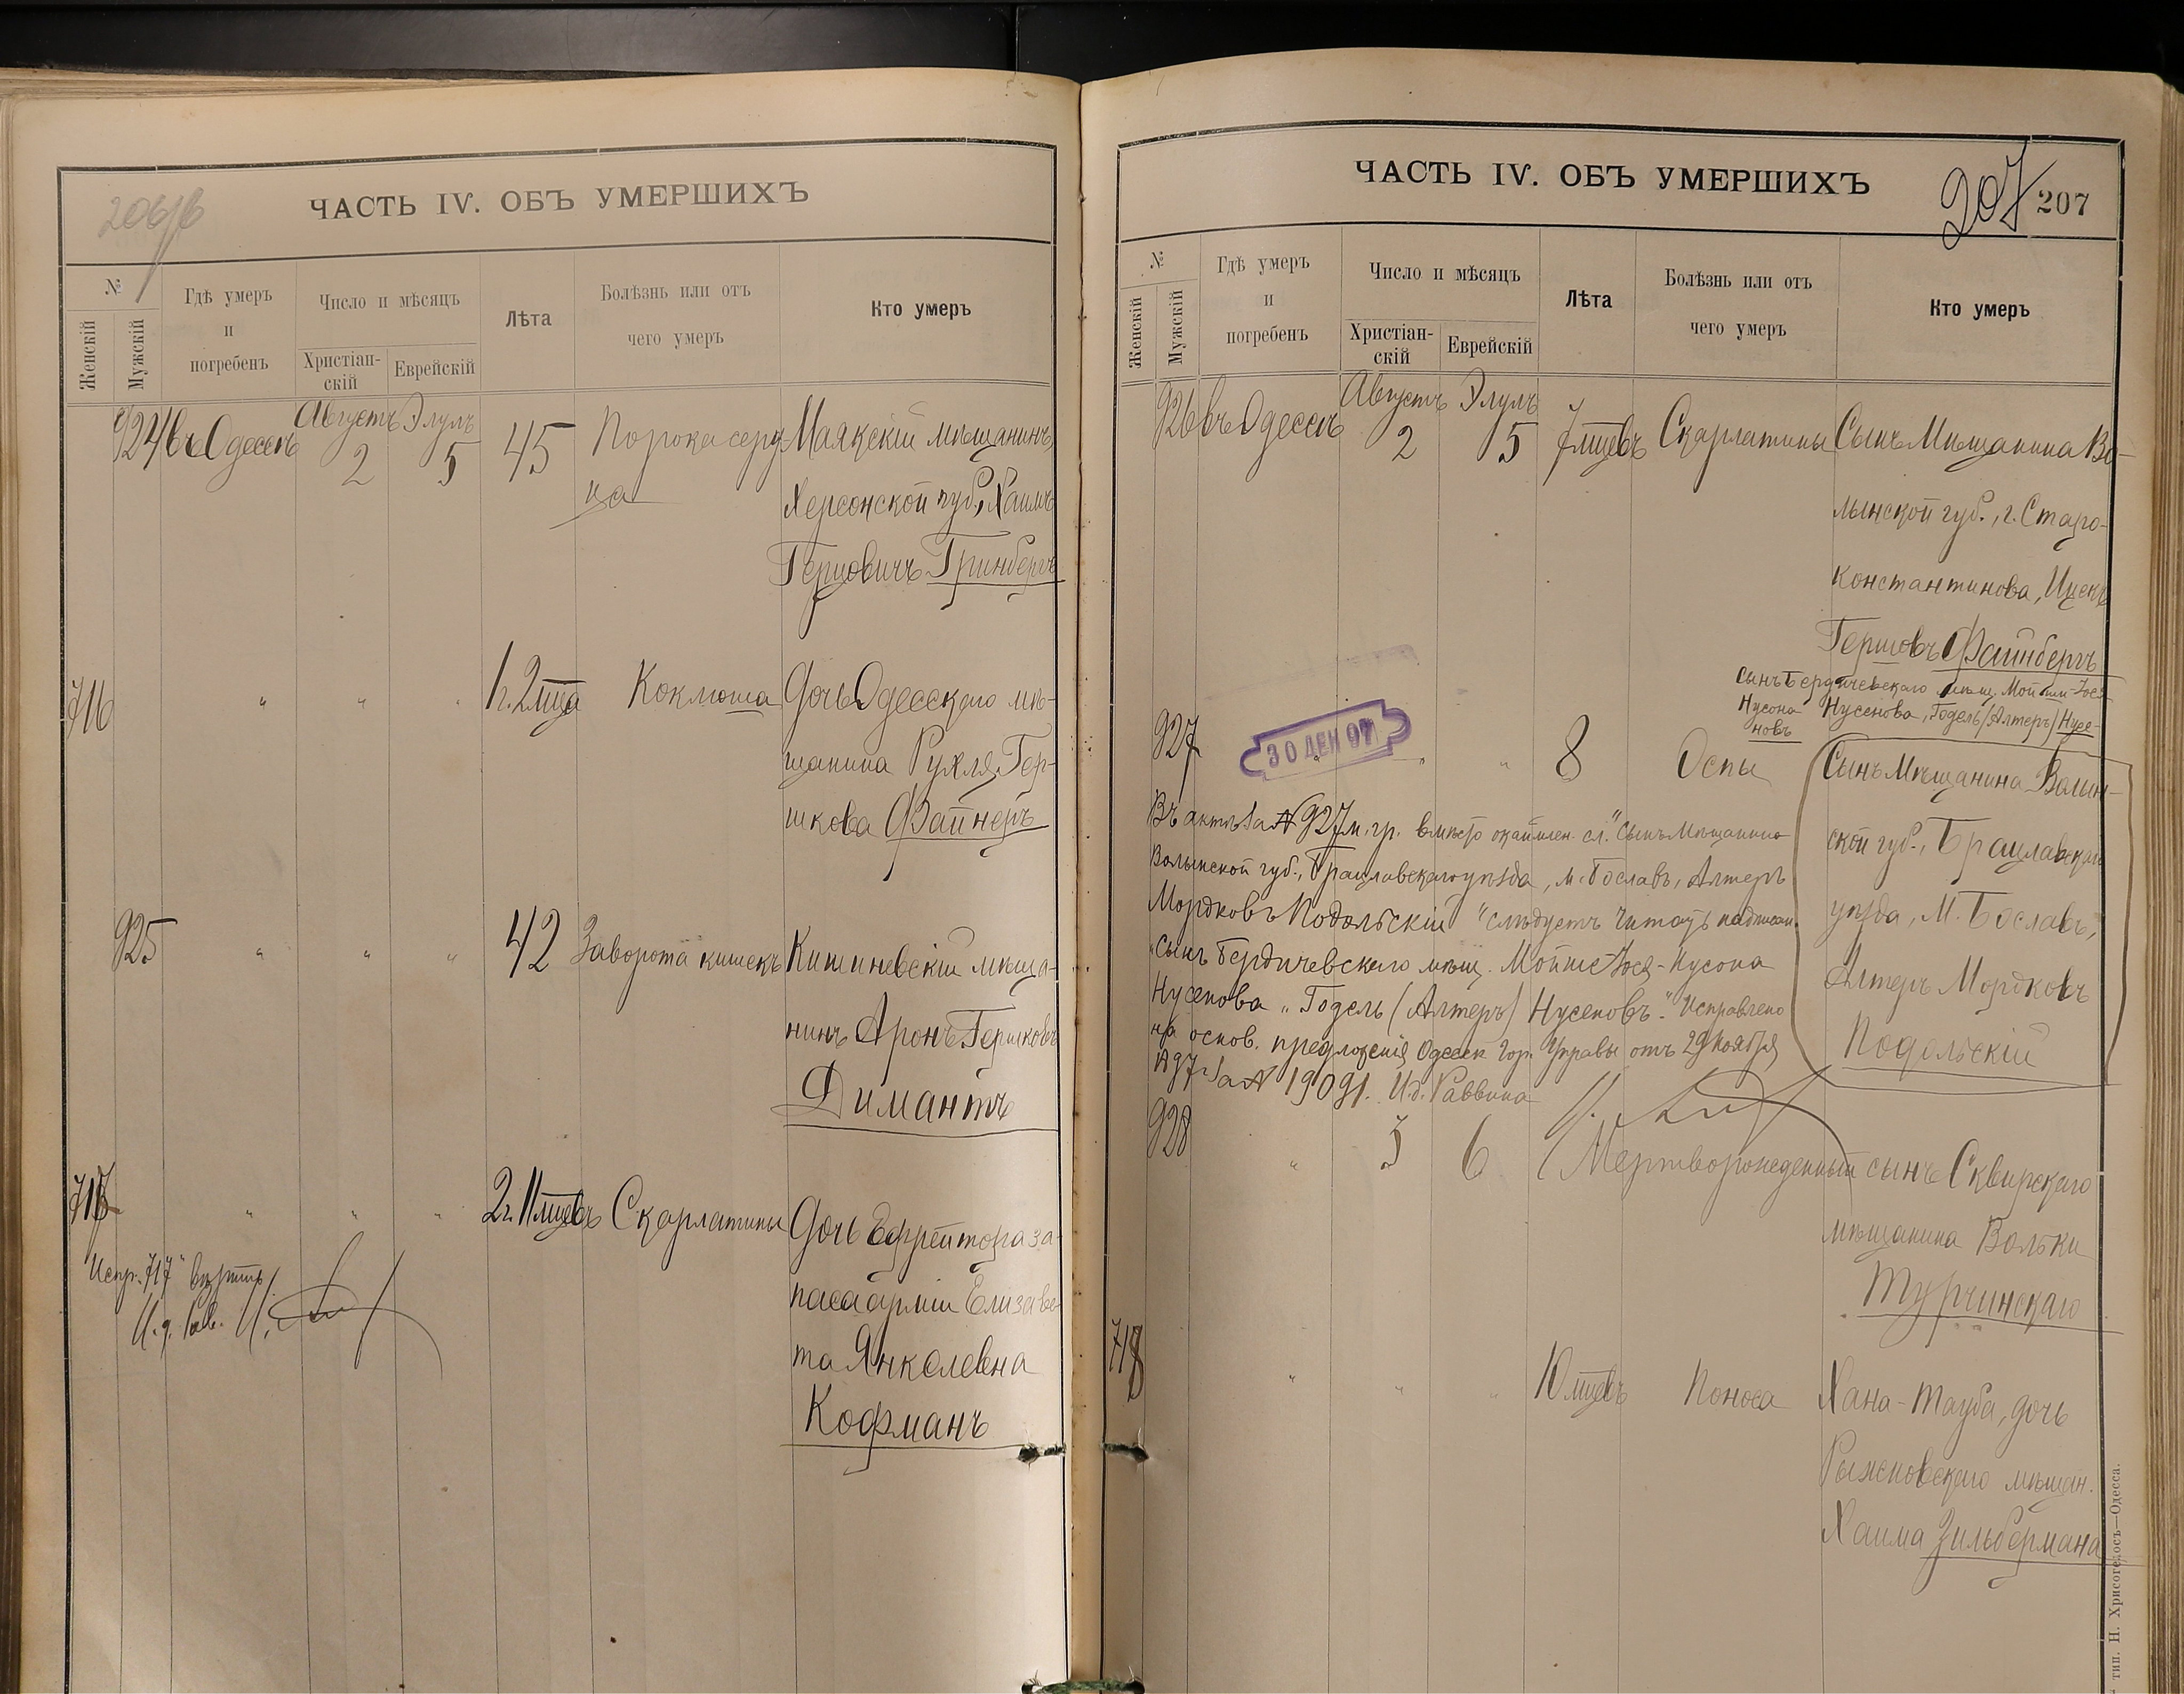 206/б
ЧАСТЬ IV. ОБЪ УМЕРШИХЪ
№
Женскій
Мужскій
Гдѣ умеръ
и
погребенъ
Число и мѣсяцъ
Христіан-
скій
Еврейскій
Лѣта
Болѣзнь или отъ
чего умеръ
Кто умеръ
924 въ Одессѣ Августъ 2 Элулъ 5 45 Порока серд- Маякскій мѣщанинъ,
ца Херсонской губ., Хаимъ
Гершовичъ Гринбергъ
716 " " " 1 г. 2 мца Коклюша Дочь Одесскаго мѣ-
щанина Рухля Гер-
шкова Файнеръ
925 " " " 42 Заворота кишекъ Кишиневскій мѣща-
нинъ Аронъ Гершковъ
Димантъ
717 " " " 2 г. 11 мцевъ Скарлатины Дочь Ефрейтора за-
паса арміи Елизаве-
та Янкелевна
Кофманъ
Испр. "717"
И. д. Рав.
ЧАСТЬ IV. ОБЪ УМЕРШИХЪ
207 207
№
Женскій
Мужскій
Гдѣ умеръ
и
погребенъ
Число и мѣсяцъ
Христіан-
скій
Еврейскій
Лѣта
Болѣзнь или отъ
чего умеръ
Кто умеръ
926 въ Одессѣ Августъ 2 Элулъ 5 7 мцевъ Скарлатины Сынъ Мѣщанина Во-
лынской губ., г. Старо-
Константинова, Ицекъ
Гершовъ Файнбергъ
Сынъ Бердичевскаго мѣщ. Мойше-Іося-
Нусона Нусенова, Годель (Алтеръ) Нусе-
новъ
30 ДЕК 97
927 " " " 8 Оспы Сынъ Мѣщанина Волын-
ской губ., Брацлавскаго
уѣзда, М. Бославъ,
Алтеръ Мордковъ
Подольскій
Въ актѣ за № 927 м. гр. вмѣсто окаймлен. сл. "Сынъ Мѣщанина
Волынской губ., Брацлавскаго уѣзда, м. Бославъ, Алтеръ
Мордковъ Подольскій" слѣдуетъ читать надписан.
"Сынъ Бердичевскаго мѣщ. Мойше Іося-Нусона
Нусенова "Годель (Алтеръ) Нусеновъ." Исправлено
на основ. предложенія Одесск. Гор. Управы отъ 29 ноября
1897 за № 19091. И.д. Раввина
928 " 3 6 Мертворожденный сынъ Сквирскаго
мѣщанина Вольки
Турчинскаго
718 " " " 10 мцевъ Поноса Хана-Тауба, дочь
Рыжновскаго мѣщан.
Хаима Зильбермана
тип. Н. Хрисогелосъ—Одесса.